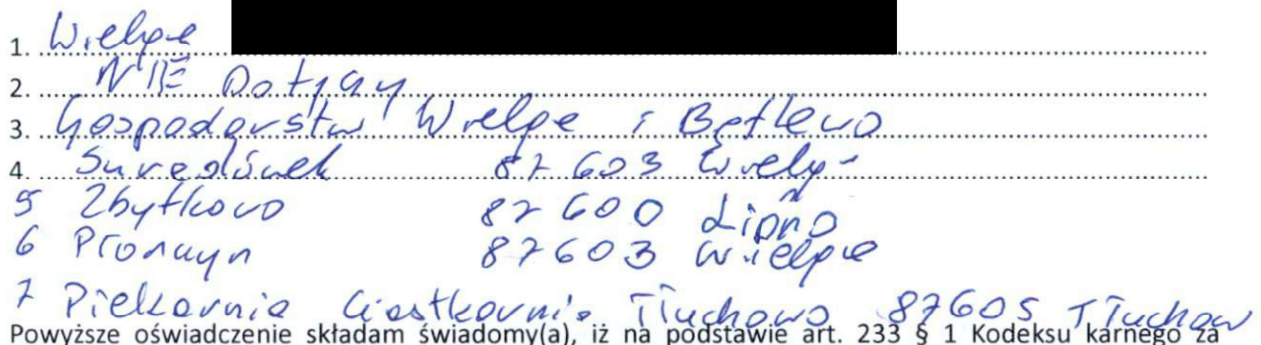 1. Wielgie
2. NIE Dotyczy
3. Gospodarstw Wielgie i Bętlewo
4. 87 603 Wielg
5 Zbytkowo 87 600 Lipno
6 87603 Wielgie
7 Piekarnia Ciastkarnia Tłuchowo 87605 Tłuchow
Powyższe oświadczenie składam świadomy(a), iż na podstawie art. 233 § 1 Kodeksu karnego za